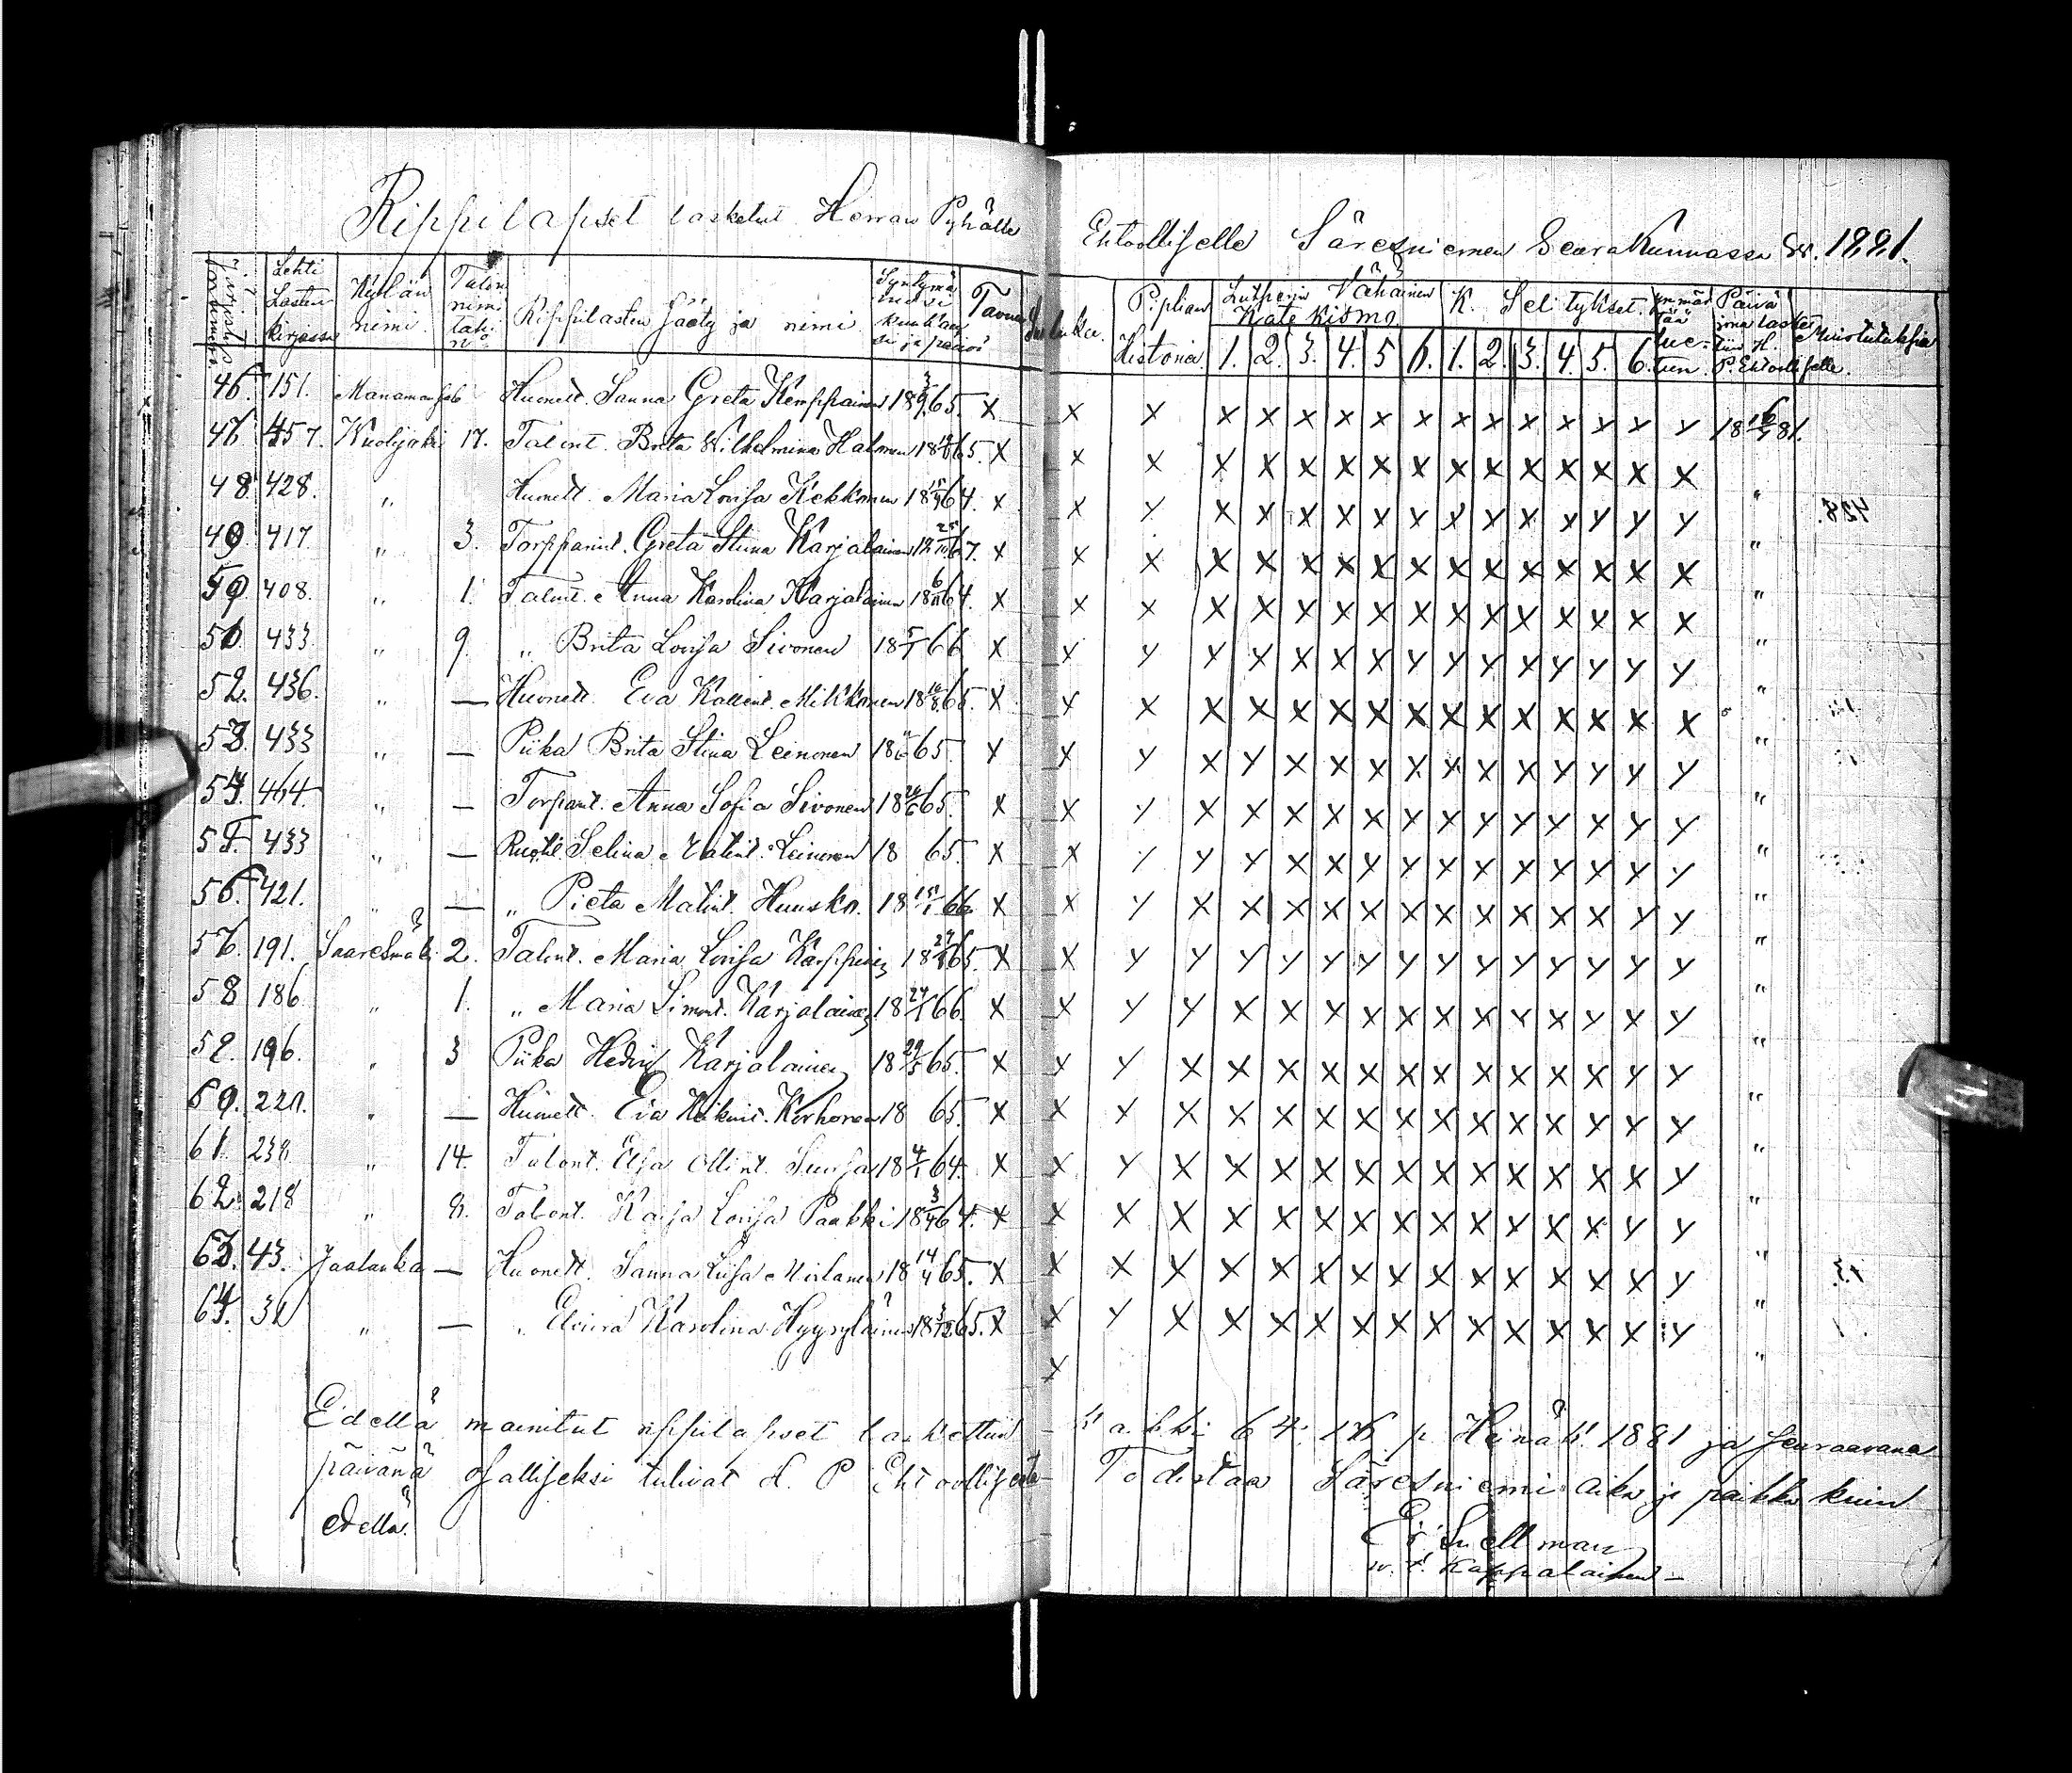 Rippilapset lasketut Herran Pyhälle Ehtoolliselle Säresniemen Seurakunnassa w. 1881.
Järjestys numero Lehti Lasten kirjassa Kylän nimi Talon nimi tahi No Rippilasten Sääty ja nimi Syntymä kuukausi ja päivä Tavu Sisäluku Piplian Historia Lutherin Vähäinen Katekismo K. Selitykset Ymmärtää Päivä jona laskettiin H. P. Ehtoolliselle Muistutuksia
1. 2. 3. 4. 5 6. 1. 2. 3. 4. 5. 6.
46. 151. Manamansalo Huonell. Sanna Greta Kemppainen 18 65. x x x x x x x x x x x x x x x y 18 81.
47. 457. Kuolijoki 17. Talont. Brita Wilhelmina Halonen 18 65. x x x x x x x x x x x x x x x x "
48 428. " Huonell. Maria Lovisa Kekkonen 18 64. x x y x x x x x x x x x x y y y " 428.
49 417 " 3. Torpparint. Greta Stina Karjalainen 18 67. x x x x x x x x x x x x x x x x "
50 408. " 1. Talont. Anna Karolina Karjalainen 18 6/11 64. x x x x x x x x x x x x x x x x "
51. 433 " 9. " Brita Lovisa Sivonen 18 66 x x y y x x x x y y y x y y y y "
52. 436. " — Huonell. Eva Kallent. Mikkonen 18 65. x x x x x x x x x x x x x x x x "
53. 433 " — Piika Brita Stina Leinonen 18 65 x x y x y x x x x x x x y y y y "
54. 464. " — Torpant. Anna Sofia Sivonen 18 65. x x y x x x x x x x y y y x y y "
55. 433 " — Ruotil. Selina Matint. Leinonen 18 65. x x y y y x x x y y x y y y y y "
56. 421. " — " Pieta Matint. Huusko. 18 66 x x y x x x x x x x x x x x y y "
57. 191. Saaresmäki 2. Talont. Maria Lovisa Karppinen 18 65. x x y y y y y y y y y y y y y y "
58 186. " 1. " Maria Simont. Karjalainen 18 66 x x y y x x x x x x x x x y x y "
59. 196. " 3 Piika Hedvig Karjalainen 18 29/5 65. x x y x x x x x x x x x x x y y "
60. 220. " — Huonell. Eva Heikint. Korhonen 18 65. x x y x x x x x x x x x x y y y "
61. 238 " 14. Talont. Elsa Ollint. Suusa 18 64. x x y x x x x x x x x x x x x y "
62. 218 " 8. Talont. Kaisa Lovisa Paakki 18 64. x x x x x x x x x x x x x x y y "
63. 43. Jaalanka — Huonell. Sanna Liisa Moilanen 18 14/4 65. x x x x x x x x x x x x x x x y " 43
64. " — " Elvira Karolina Hyyryläinen 18 3/12 65. x x y x x x x x x x x x x x x y "
x "
Edellä mainitut rippilapset laskettiin k:akki 64: p. Heinäk. 1881 ja seuraavana
päivänä osalliseksi tulivat H. P. Ehtoollisesta Todistaa Säresniemi aika ja paikka kuin
edellä.
Snellman
v. t. Kappalainen —